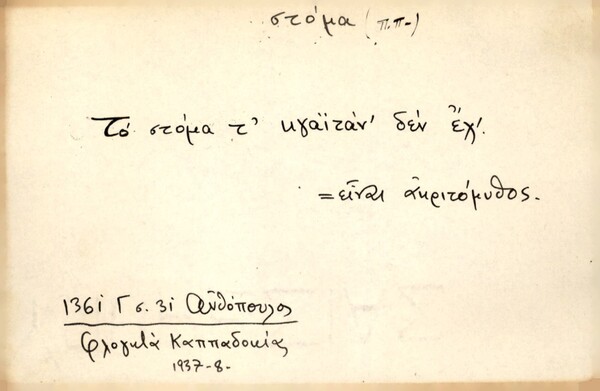 στόμα (π.π-)
Τό στόμα τ' κγαϊτάν' δέν ἔχ'.
= εἶναι ἀκριτόμυθος.
1361 Γ σ. 31 Ἀνθόπουλος
Φλογητά Καππαδοκίας
1937-8-